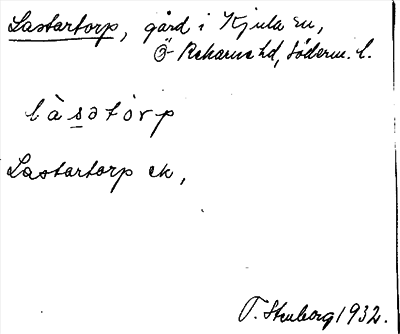 Lastartorp, gård i Kjula sn,
Ö. Rekarne hd, Söderm. l.
l à s ə t ò r p
Lastartorp ek,
T. Stenberg 1932.